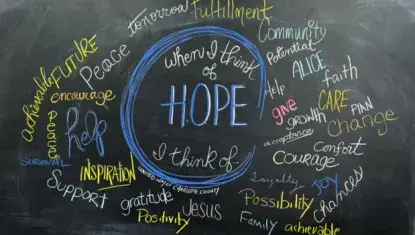 Tomorrow
Fulfillment
Community
Potential
ALICE
faith
Help
give
CARE
PLAN
GROWTH
Change
acceptance
Comfort
COURAGE
Loyalty
JOY
chances
Possibility
Family
achievable
Jesus
gratitude
Positivity
Support
INSPIRATION
SURVIVAL
help
peace
encourage
achievable
FUTURE
Peace
when I think
of
HOPE
I think of
UNITED WAY OF GENESEE COUNTY